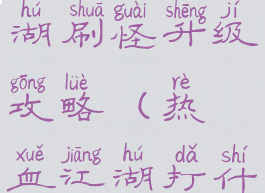 hú shuā guài shēng jí
湖刷怪升级
gōng lüè rè
攻略（热
xuě jiāng hú dǎ shí
血江湖打什